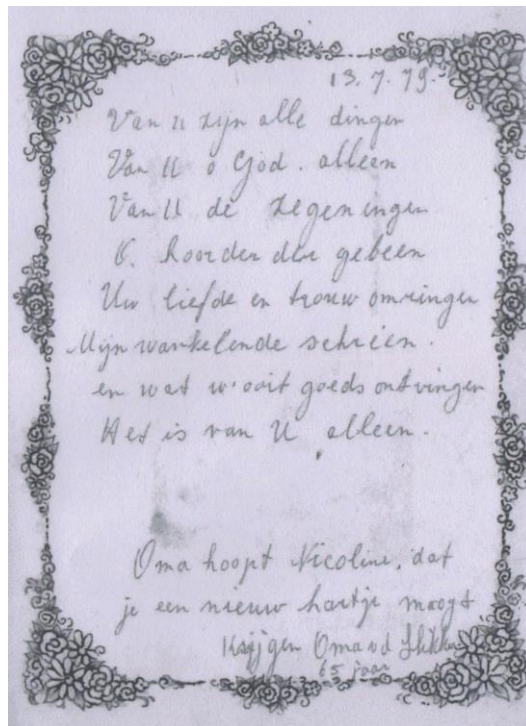 13.7.79.
Van u zijn alle dingen
Van U o God. alleen
Van U de zegeningen
O. Hoorder der gebeen
Uw liefde en trouw omringen
Mijn wankelende schreên.
en wat w'ooit goeds ontvingen
Het is van U alleen.
Oma hoopt Nicoline, dat
je een nieuw hartje moogt
Krijgen Oma vd
65 jaar